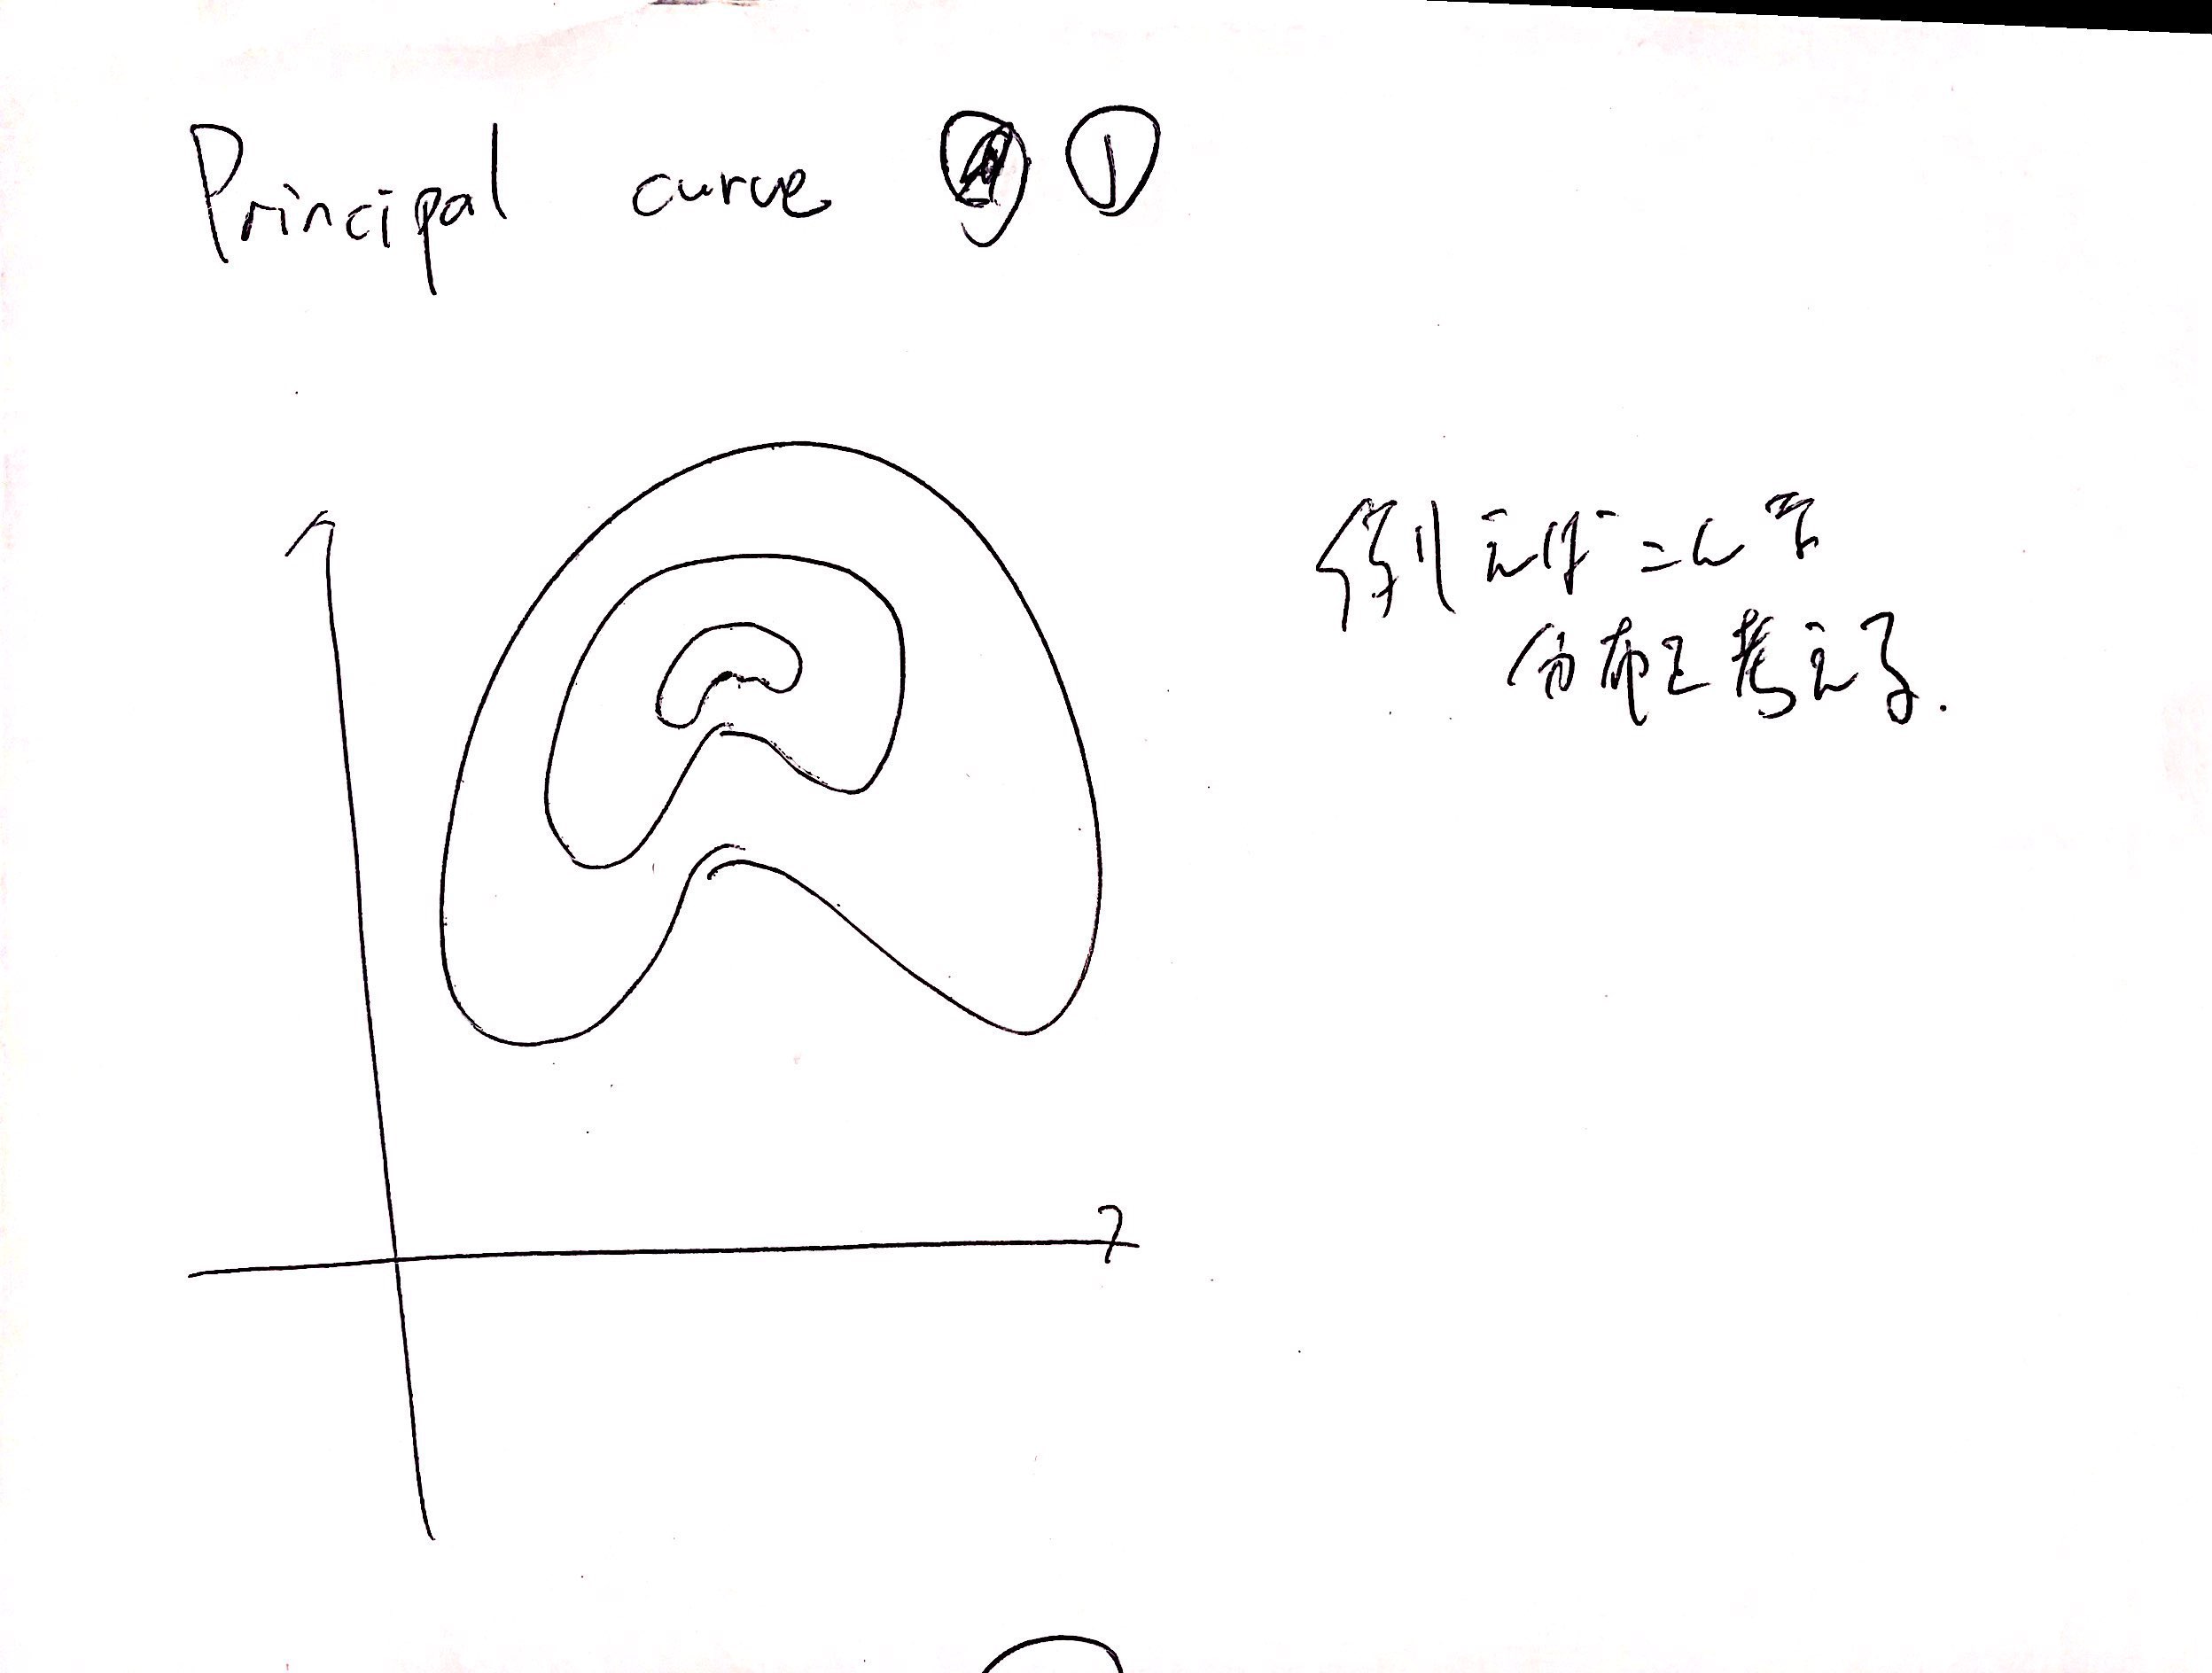 Principal curve ①
例えばこんな
分布を考える.